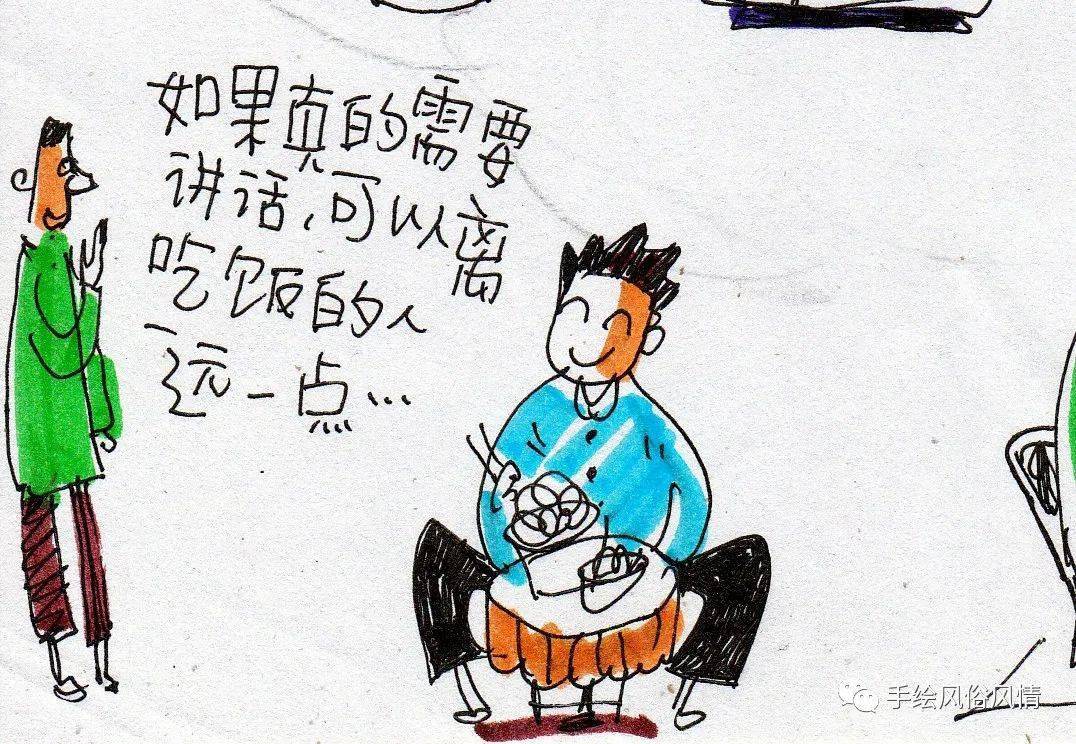 如果真的需要
讲话，可以离
吃饭的人
远一点…
手绘风俗风情